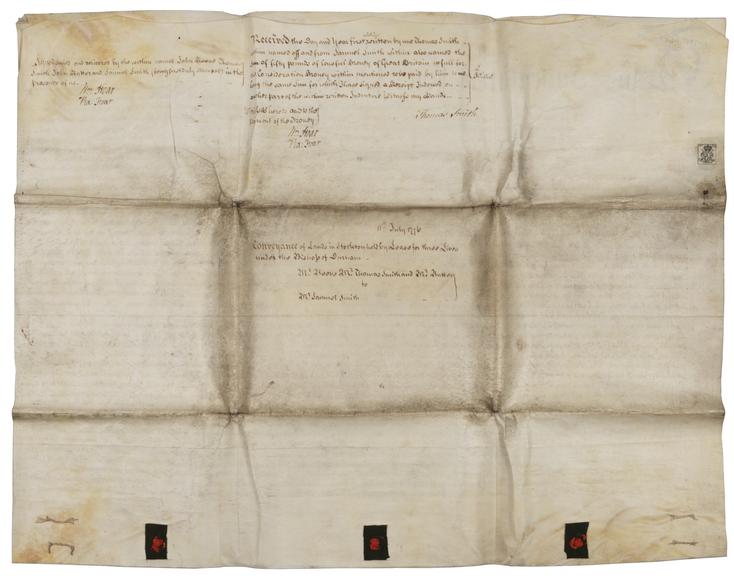 Sealed and delivered by the within named John Thomas
Smith John Hutton and Samuel Smith being first duly stampt in the
presence of us
Wm Avar
Received the Day and Year first within written by me Thomas Smith
within named of and from Samuel Smith within also named the
sum of fifty pounds of lawful Money of Great Britain in full for
the Consideration Money within mentioned to be paid by him to me
being the same Sum for which I have signed a Receipt Indorsed on
other part of the within written Indenture Witness my Hand
Thomas Smith
Witness hereto and to the
payment of the Money
Wm Avar
July 1776
Conveyance of Lands in Stockton held by Lease for three Lives
under the Bishop of Durham
Mr. Mr. Thomas Smith and Mr. Hutton
to
Mr. Samuel Smith